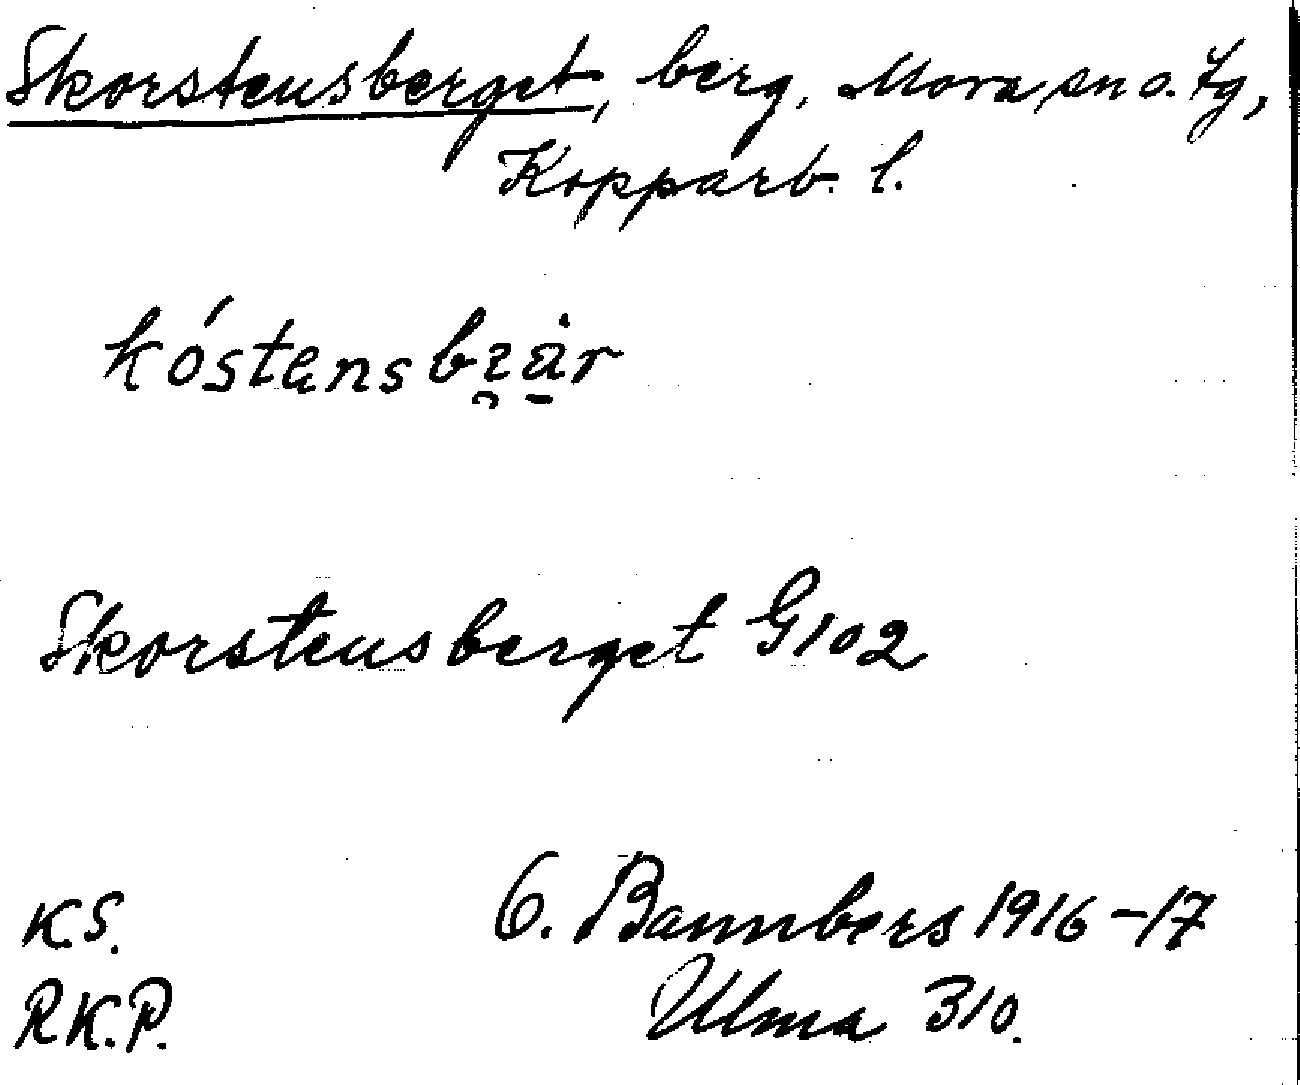 Skorstensberget, berg, Mora sn o. tg,
Kopparb. l.
kóstensbɿår
Skorstensberget G102
KS. O. Bannbers 1916-17
R.K.P. Ulma 310.